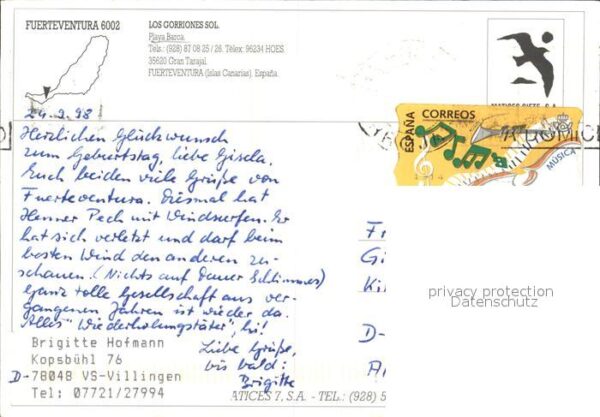 FUERTEVENTURA 6002
LOS GORRIONES SOL.
Playa Barca.
Tels.: (928) 87 08 25 / 26. Télex: 96234 HOES
35620 Gran Tarajal.
FUERTEVENTURA (Islas Canarias). España.
MATICES SIETE, S.A.
ESPAÑA
CORREOS
MÚSICA
24.2.98
Herzlichen Glückwunsch
zum Geburtstag, liebe Gisela.
Euch beiden viele Grüße von
Fuerteventura. Diesmal hat
Henner Pech mit Windsurfen. Er
hat sich verletzt und darf beim
besten Wind den anderen zu-
schauen. (Nichts auf Dauer Schlimmes)
Ganz tolle Gesellschaft aus ver-
gangenen Jahren ist wieder da.
Alles "Wiederholungstäter",
Liebe Grüße,
bis bald:
Brigitte
Brigitte Hofmann
Kopsbühl 76
D-78048 VS-Villingen
Tel: 07721/27994
F
G
Ki
D-
privacy protection
Datenschutz
ATICES 7, S.A. - TEL.: (928) 5